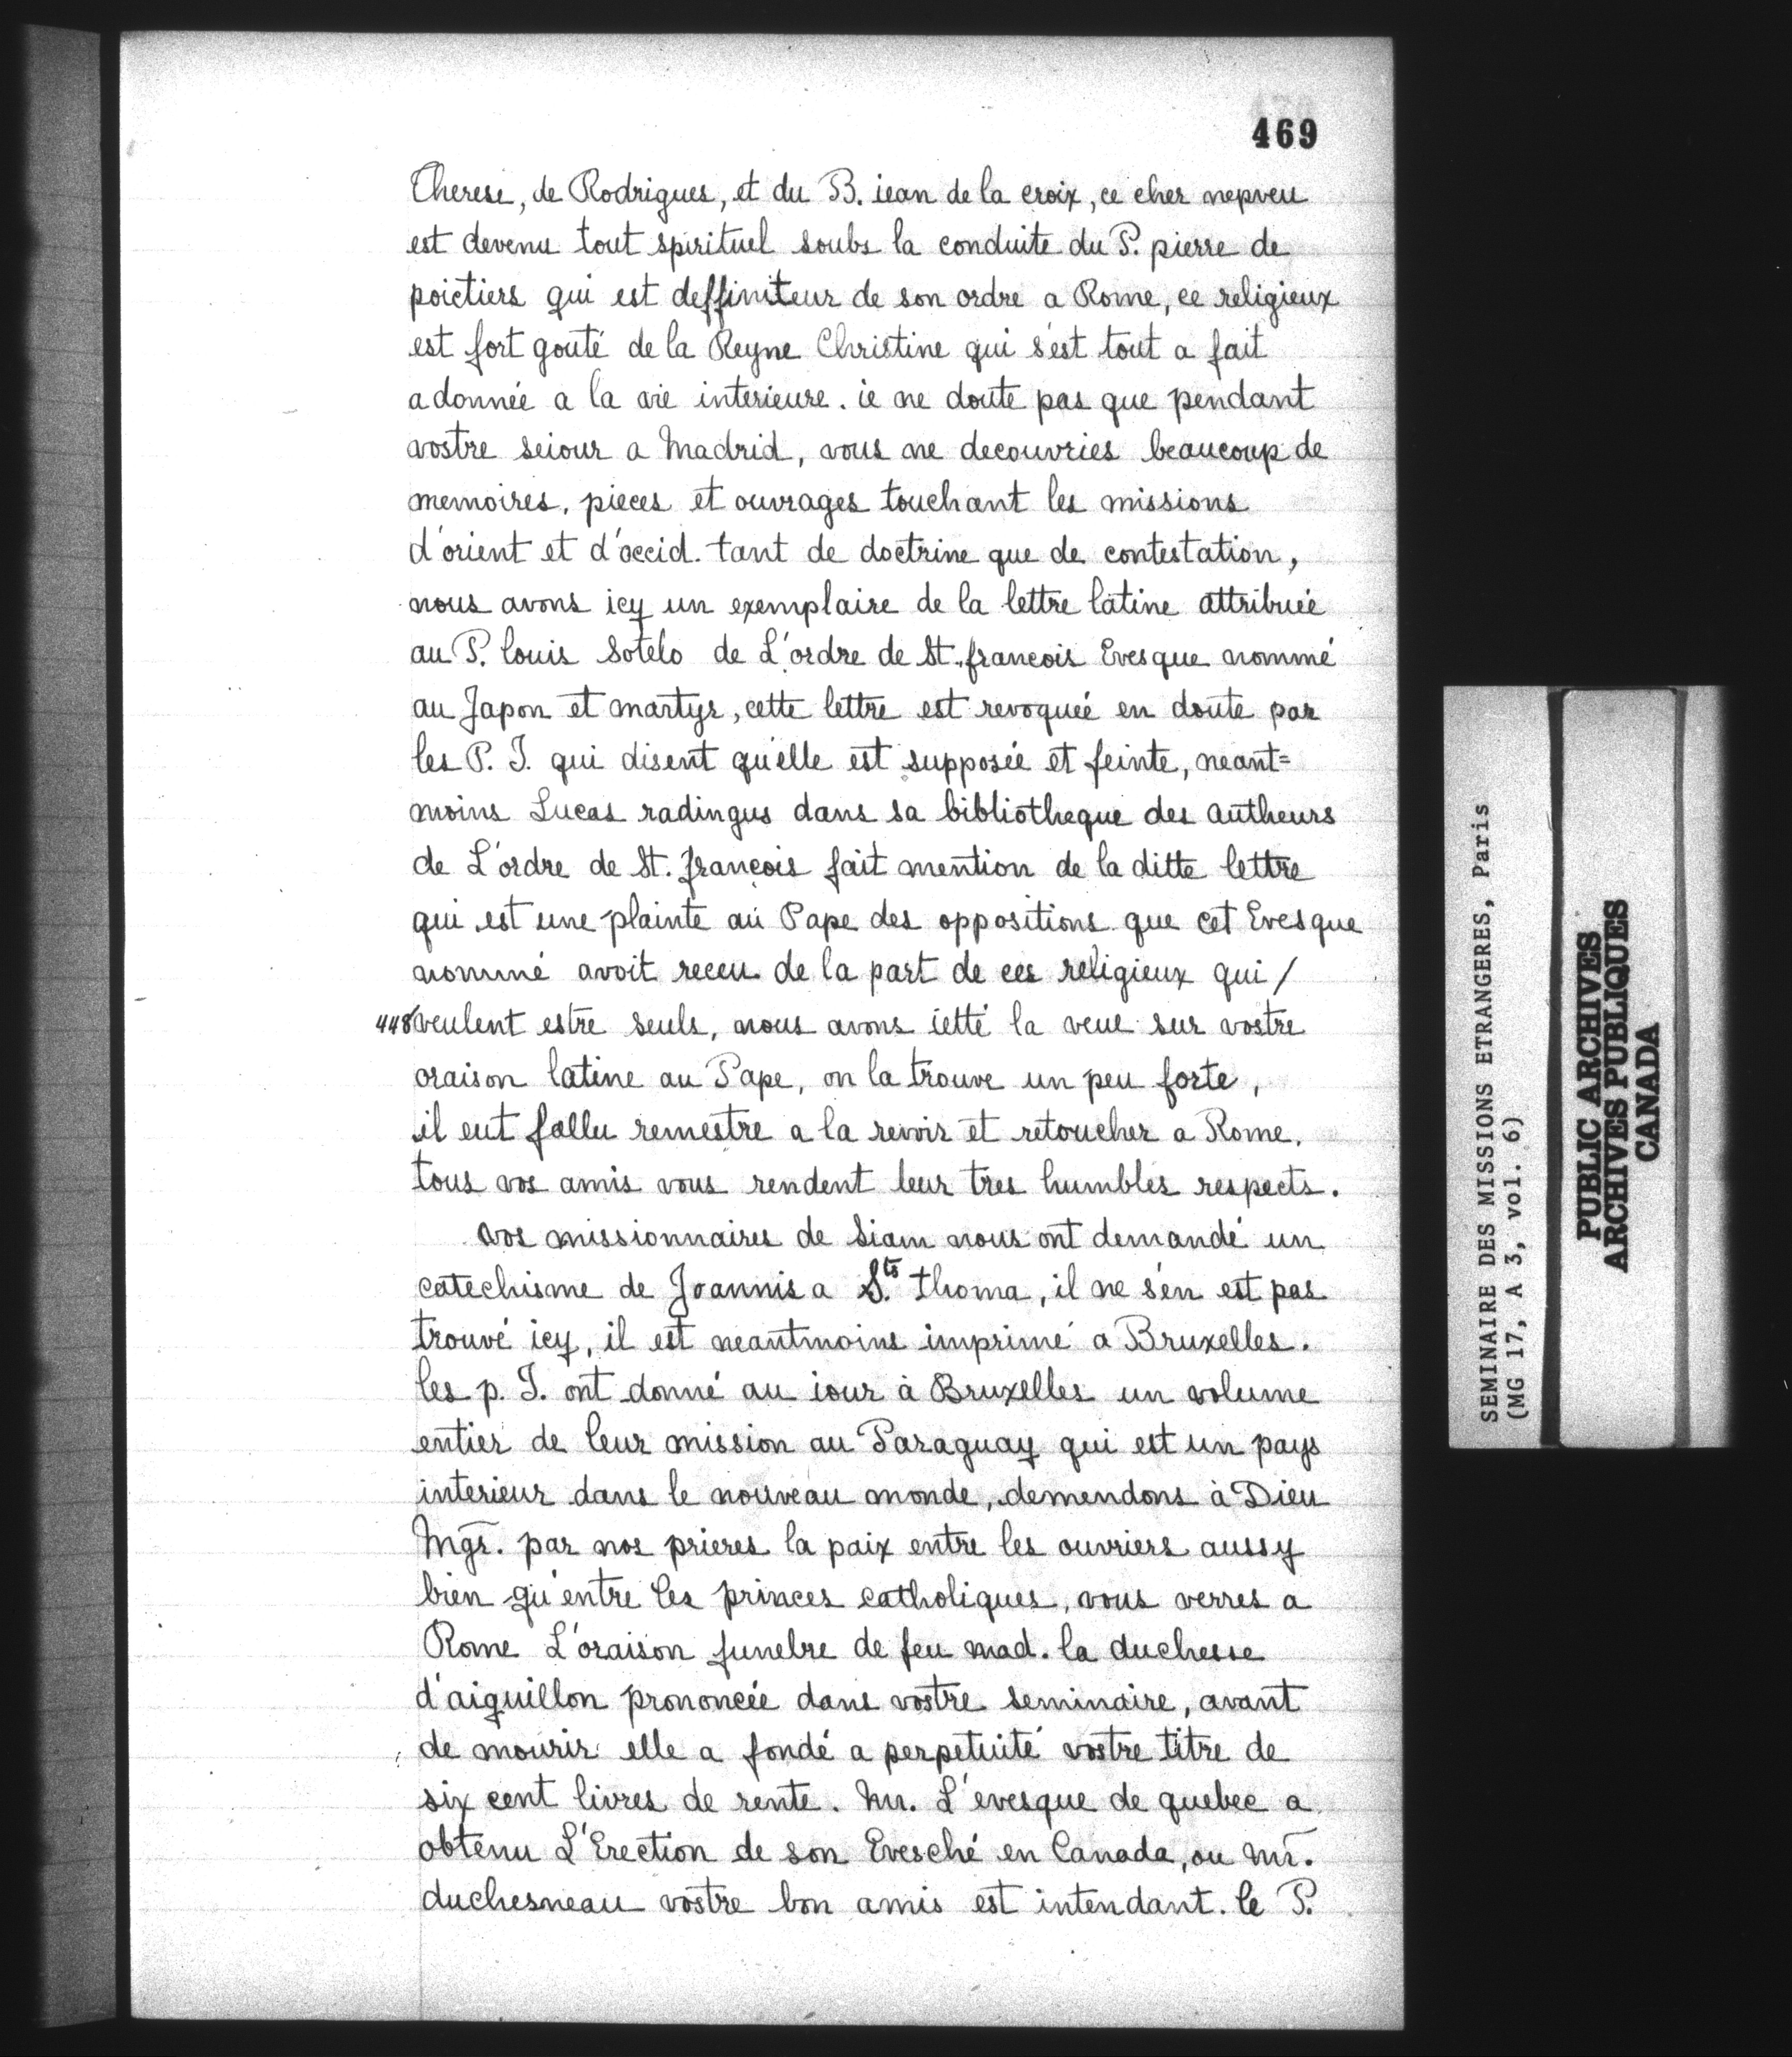 469
Therese, de Rodrigues, et du B. iean de la croix, ce cher nepveu
est devenu tout spirituel soubs la conduite du P. pierre de
poictiers qui est deffiniteur de son ordre a Rome, ce religieux
est fort gouté de la Reyne Christine qui s'est tout a fait
adonnée a la vie interieure. ie ne doute pas que pendant
vostre seiour a Madrid, vous ne decouvries beaucoup de
memoires, pieces et ouvrages touchant les missions
d'orient et d'occid. tant de doctrine que de contestation,
nous avons icy un exemplaire de la lettre latine attribuée
au P. louis Sotelo de L'ordre de St. francois Evesque nommé
au Japon et martyr, cette lettre est revoquée en doute par
les P. J. qui disent qu'elle est supposée et feinte, neant=
moins Lucas radingus dans sa bibliotheque des autheurs
de L'ordre de St. françois fait mention de la ditte lettre
qui est une plainte au Pape des oppositions que cet Evesque
nommé avoit receu de la part de ces religieux qui /
448 veulent estre seuls, nous avons ietté la veue sur vostre
oraison latine au Pape, on la trouve un peu forte,
il eut fallu remestre a la revoir et retoucher a Rome.
tous vos amis vous rendent leur tres humbles respects.
vos missionnaires de Siam nous ont demandé un
catechisme de Joannis a S.to thoma, il ne s'en est pas
trouvé icy, il est neantmoins imprimé a Bruxelles.
les p. J. ont donné au iour à Bruxelles un volume
entier de leur mission au Paraguay qui est un pays
interieur dans le nouveau monde, demendons à Dieu
Mgr. par nos prieres la paix entre les ouvriers aussy
bien qu'entre les princes catholiques, vous verres a
Rome L'oraison funebre de feu mad. la duchesse
d'aiguillon prononcée dans vostre seminaire, avant
de mourir elle a fondé a perpetuité vostre titre de
six cent livres de rente. Mr. L'evesque de quebec a
obtenu L'Erection de son Evesché en Canada, ou Mr.
duchesneau vostre bon amis est intendant. le P.
SEMINAIRE DES MISSIONS ETRANGERES, Paris
(MG 17, A 3, vol. 6)
PUBLIC ARCHIVES
ARCHIVES PUBLIQUES
CANADA